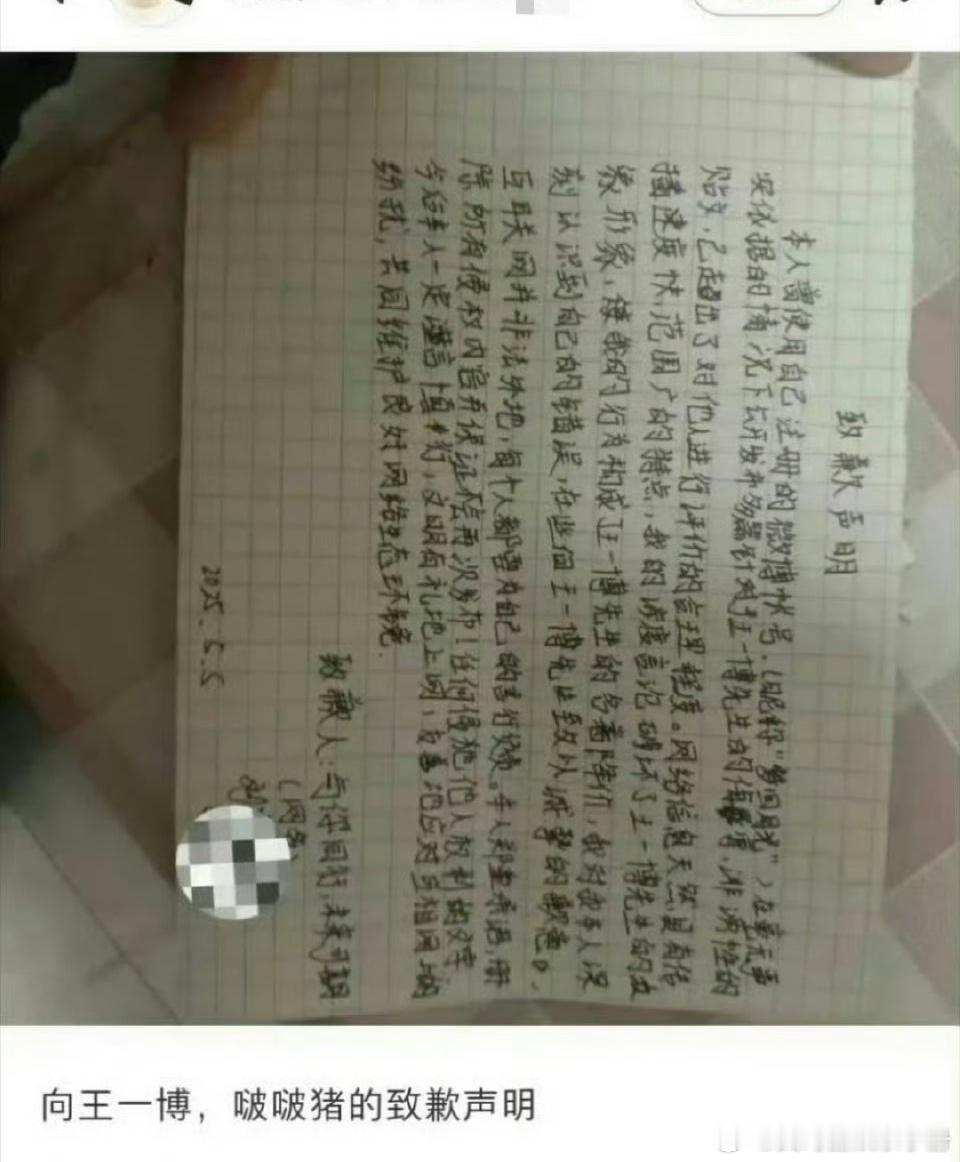 致歉声明
本人曾使用自己注册的微博帐号(昵称"梦回眸"),在毫无事
实依据的情况下公开发布多篇针对王一博先生的侮辱、诽谤性的
贴文,已超出了对他人进行评价的合理程度。网络信息天然具有传
播速度快,范围广的特点,我的涉虚言论破坏了王一博先生的公
象形象,使我的行为构成王一博先生的名誉降价,我对我本人深
刻认识到自己的错误,在此向王一博先生致以诚挚的歉意。
互联网并非法外地,每个人都要为自己的言行负责。本人郑重承诺,删
除所有侵权内容并保证不会再次发布任何侵施他人权利的文字
今后本人一定谨言慎行,文明有礼地上网,友善地应对互相网上的
纷扰,共同维护良好网络生态环境.
致歉人:与你同行,未来可期
(网名)
2025.5.5
向王一博,啵啵猪的致歉声明